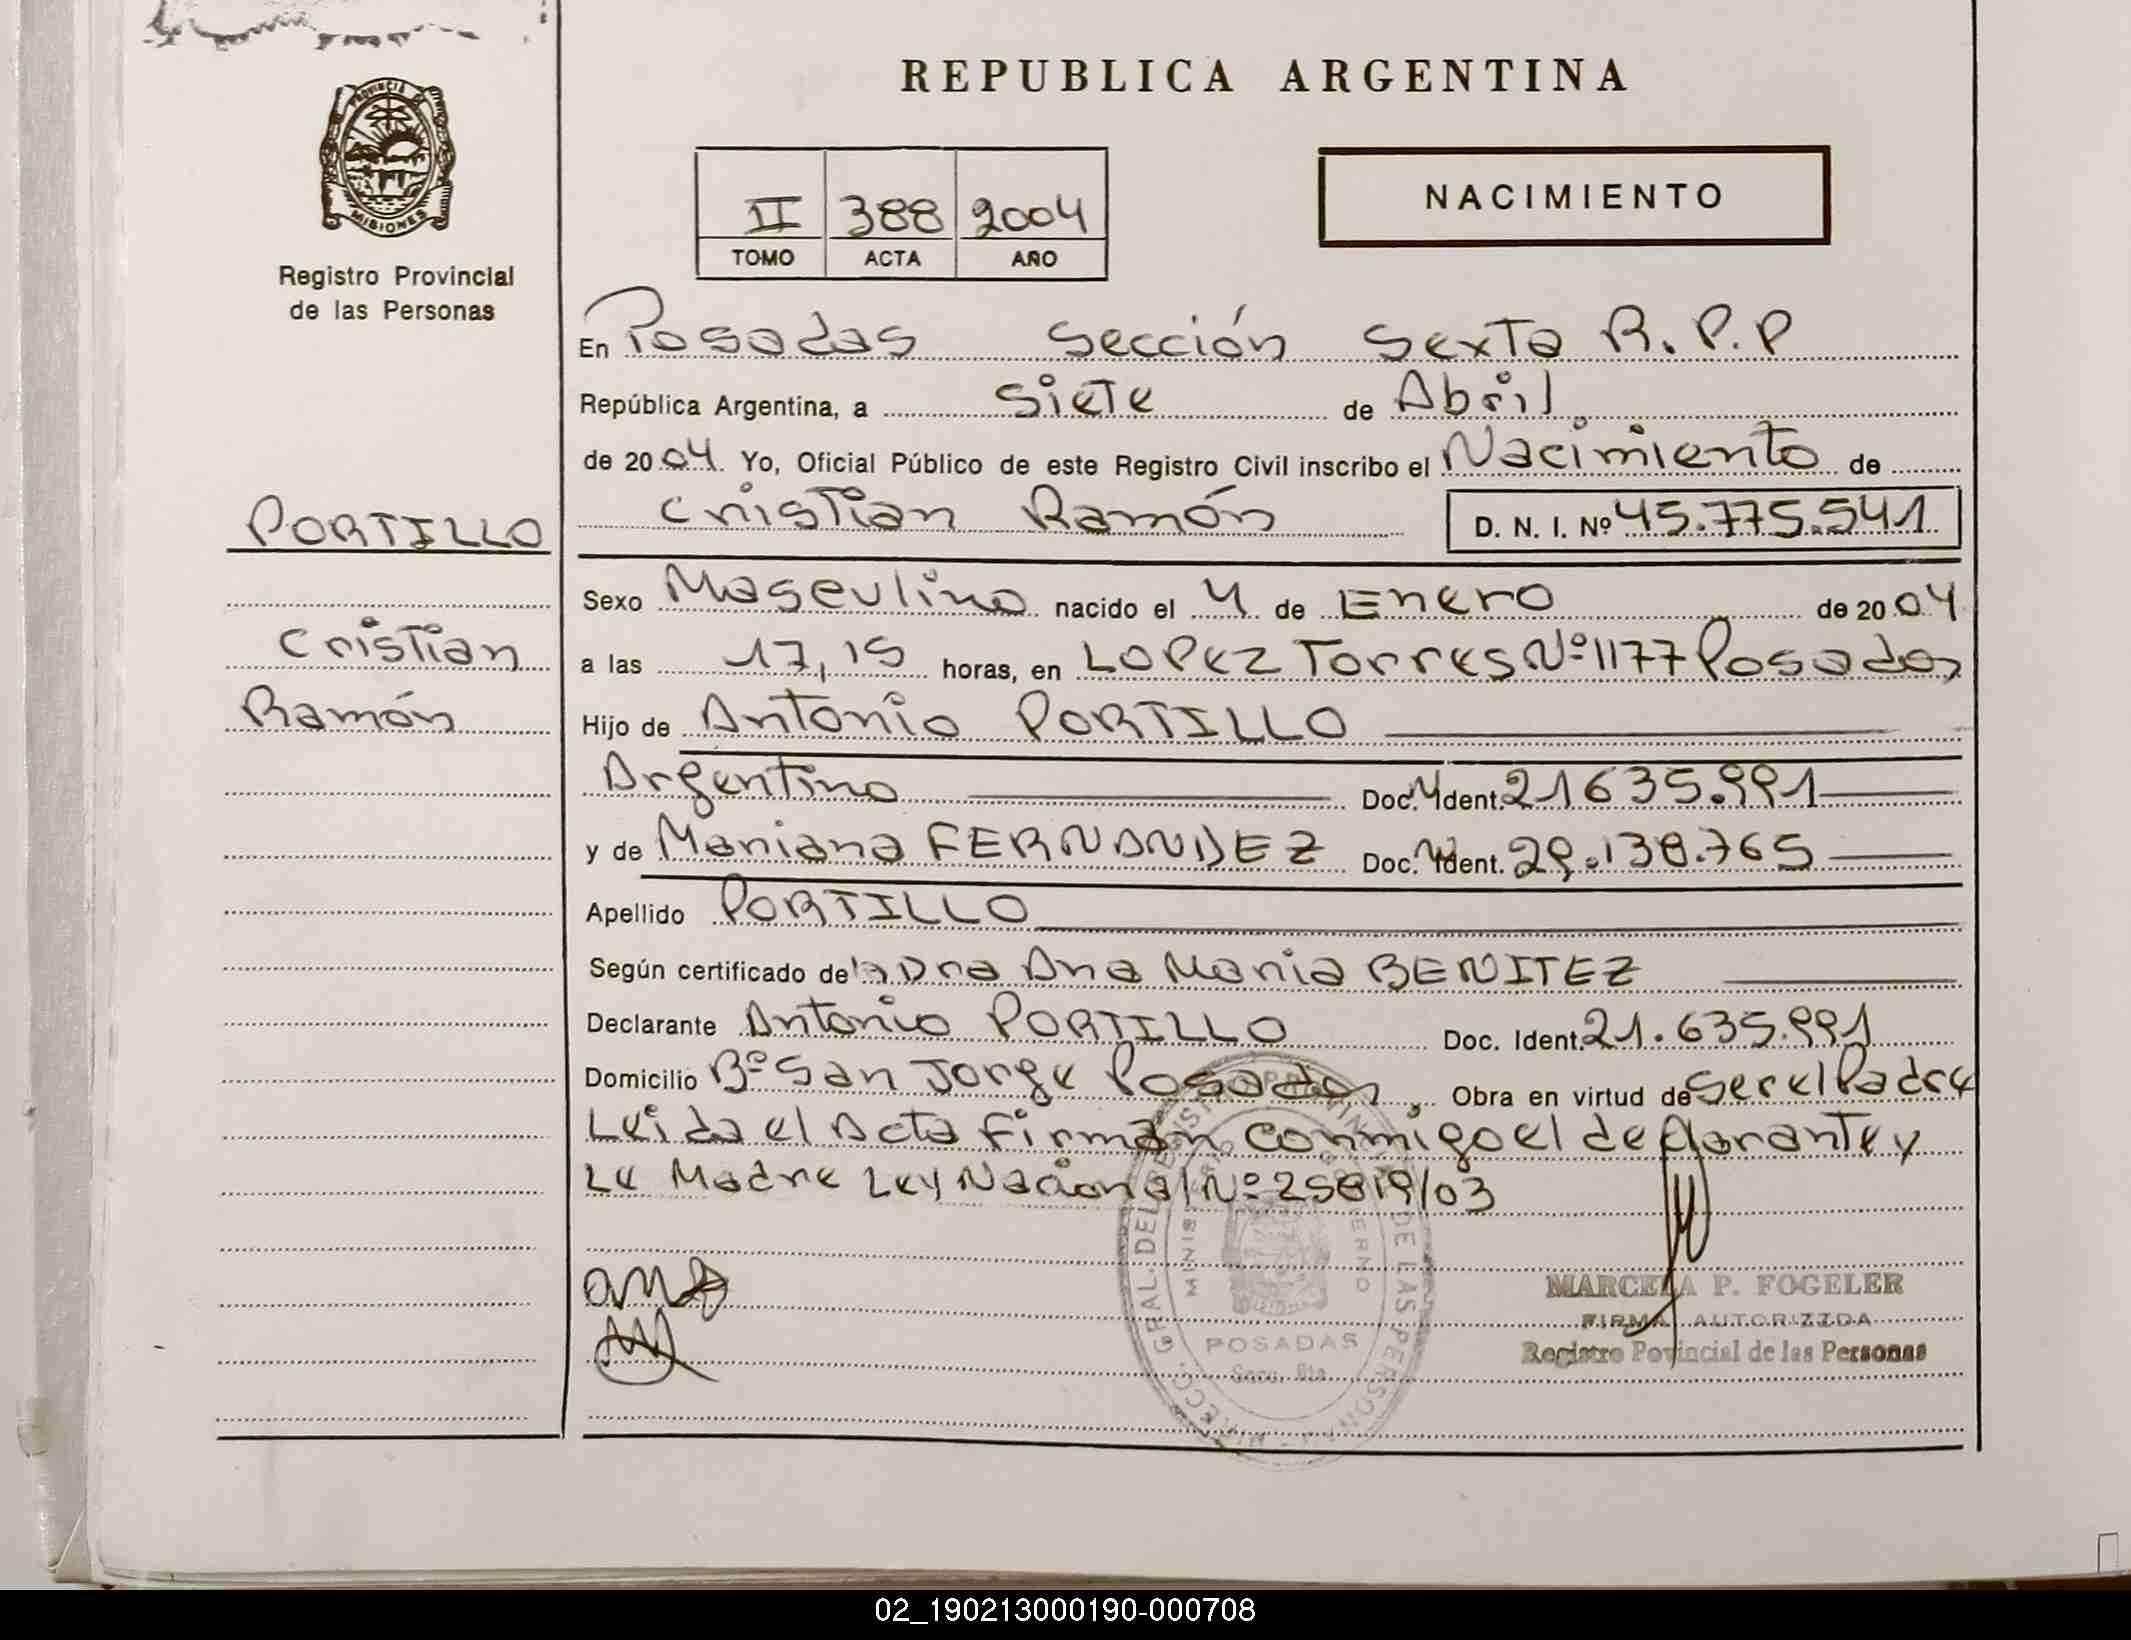 REPUBLICA ARGENTINA
PROVINCIA DE
MISIONES
Registro Provincial
de las Personas
II 388 2004
TOMO ACTA AÑO
NACIMIENTO
En Posadas Sección Sexta R.P.P
República Argentina, a siete de Abril
de 2004. Yo, Oficial Público de este Registro Civil inscribo el Nacimiento de
Cristian Ramón D. N. I. Nº 45.775.541
PORTILLO
Cristian
Ramón
Sexo Masculino nacido el 4 de Enero de 2004
a las 17,15 horas, en Lopez Torres Nº 1177 Posadas
Hijo de Antonio PORTILLO
Argentino Doc. Ident. 21635.991
y de Mariana FERNANDEZ Doc. Ident. 29.138.765
Apellido PORTILLO
Según certificado de la Dra Ana Maria BENITEZ
Declarante Antonio PORTILLO Doc. Ident. 21.635.991
Domicilio Bº San Jorge Posadas, Obra en virtud de ser el Padre
Leida el Acta firman conmigo el declarante y
La Madre Ley Nacional Nº 25819/03
POSADAS
Secc. 6ta
MARCELA P. FOGELER
FIRMA AUTORIZZDA
Registro Povincial de las Personas
02_190213000190-000708